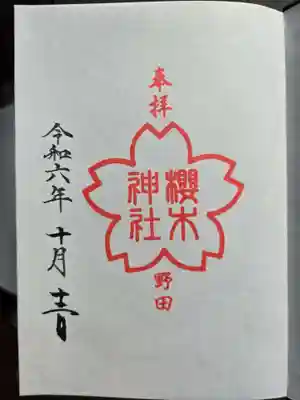 奉拝
櫻木
神社
野田
令和六年 十月 日